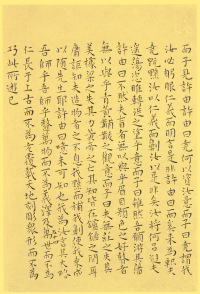 意而子見許由許由曰堯何以資汝意而子曰堯謂我
汝必躬服仁義而明言是非許由曰而奚來為軹夫
堯既黥汝以仁義而劓汝以是非矣汝將何以遊夫
遙蕩恣睢轉徙之塗乎意而子曰雖然吾願遊其藩
許由曰不然夫盲者無以與乎眉目顏色之好瞽者
無以與乎青黃黼黻之觀意而子曰夫無莊之失其
美據梁之失其力黃帝之亡其知皆在鑪錘之間耳
庸詎知夫造物者之不息我黥而補我劓使我乘成
以隨先生邪許由曰噫未可知也我為汝言其大略
吾師乎吾師乎萬物而不為義澤及萬世而不為
仁長於上古而不為老覆載天地刻彫眾形而不為
巧此所遊已